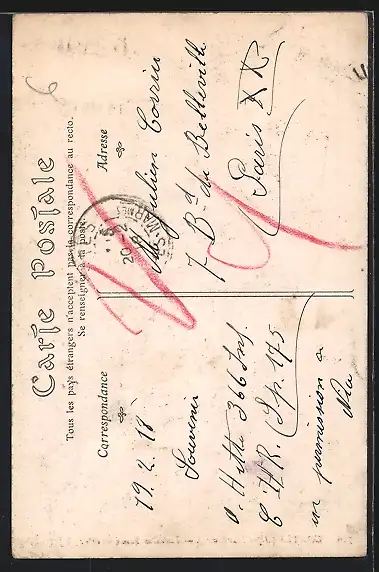 Carte Postale
Tous les pays étrangers n'acceptent pas la correspondance au recto.
Se renseigner à la poste.
Correspondance
19.2.18
Souvenir
366 Inf.
C.H.R. Sp. 175
en permission à
Adresse
Julien
7 Bd de Belleville
Paris XX
20-2
MARNE
6